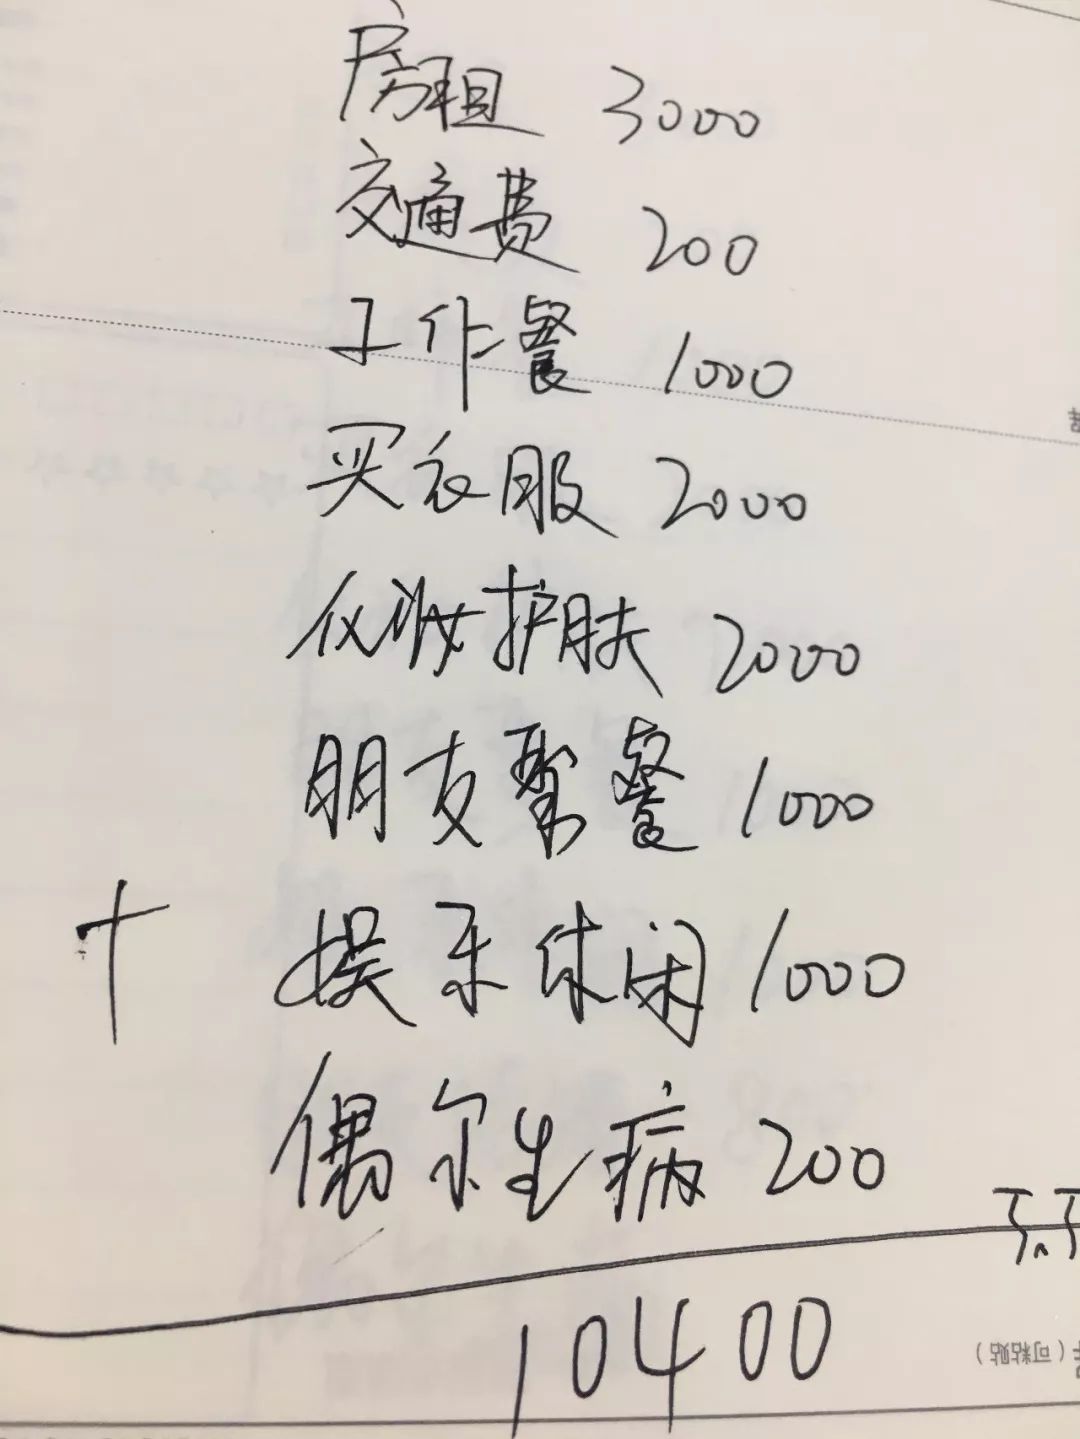 房租 3000
交通费 200
工作餐 1000
买衣服 2000
化妆护肤 2000
朋友聚餐 1000
+ 娱乐休闲 1000
偶尔生病 200
10400
(可粘贴)